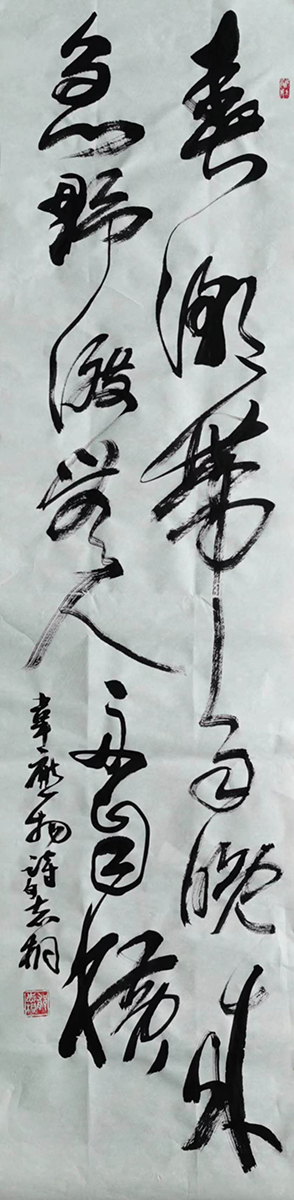 春潮带雨晚来
急野渡无人舟自横
韦应物诗句志桐